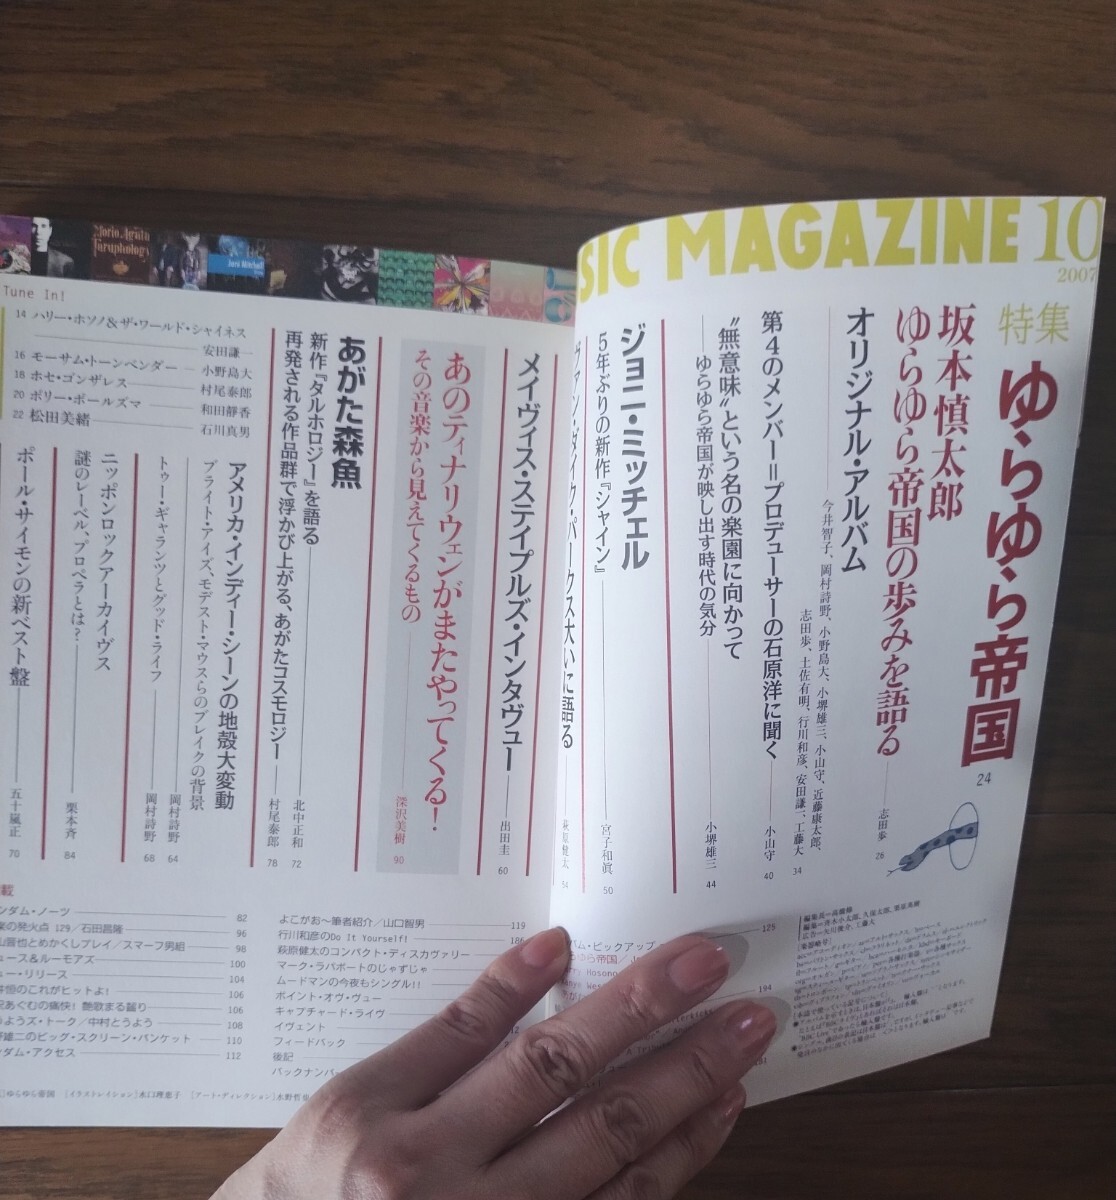 SIC MAGAZINE 10
2007
特集
ゆらゆら帝国
24
坂本慎太郎
ゆらゆら帝国の歩みを語る
志田歩
26
オリジナル・アルバム
今井智子、岡村詩野、小野島大、小堺雄三、小山守、近藤康太郎、
志田歩、土佐有明、行川和彦、安田謙一、工藤大
34
第4のメンバー=プロデューサーの石原洋に聞く
小山守
40
“無意味”という名の楽園に向かって
ゆらゆら帝国が映し出す時代の気分
小堺雄三
44
ジョニ・ミッチェル
5年ぶりの新作『シャイン』
宮子和眞
50
ヴァン・ダイク・パークス大いに語る
萩原健太
54
メイヴィス・ステイプルズ・インタヴュー
出田圭
60
あのティナリウェンがまたやってくる!
その音楽から見えてくるもの
深沢美樹
90
あがた森魚
新作『タルホロジー』を語る
北中正和
72
再発される作品群で浮かび上がる、あがたコスモロジー
村尾泰郎
78
Tune In!
14 ハリー・ホソノ&ザ・ワールド・シャイネス
安田謙一
16 モーサム・トーンベンダー 小野島大
18 ホセ・ゴンザレス 村尾泰郎
20 ポリー・ポールズマ 和田靜香
22 松田美緒 石川真男
アメリカ・インディー・シーンの地殻大変動
ブライト・アイズ、モデスト・マウスらのブレイクの背景
岡村詩野
64
トゥー・ギャランツとグッド・ライフ
岡村詩野
68
ニッポンロックアーカイヴス
謎のレーベル、プロペラとは?
栗本斉
84
ポール・サイモンの新ベスト盤
五十嵐正
70
載
ンダム・ノーツ 82
楽の発火点 129/石田昌隆 96
山晋也とめかくしプレイ/スマーフ男組 98
ュース&ルーモアズ 100
ュー・リリース 104
井恒のこれがヒットよ! 106
沢あぐむの痛快! 艶歌まる齧り 106
うようズ・トーク/中村とうよう 108
野雄二のビッグ・スクリーン・バンケット 110
ンダム・アクセス 112
よこがお～筆者紹介/山口智男 119
行川和彦のDo It Yourself! 186
萩原健太のコンパクト・ディスカヴァリー
マーク・ラパポートのじゃずじゃ
ムードマンの今夜もシングル!!
ポイント・オヴ・ヴュー
キャプチャード・ライヴ
イヴェント
フィードバック
後記
バックナンバー
バム・ピックアップ 125
194
ゆらゆら帝国 [イラストレイション]水口理恵子 [アート・ディレクション]水野哲也
編集長=高橋修
編集=青木小太郎、久保太郎、栗原英樹
広告=矢川俊介、工藤大